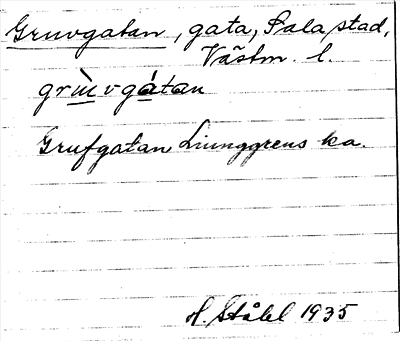 Gruvgatan, gata, Sala stad,
Västm. l.
grùvgátan
Grufgatan Ljunggrens ka.
H. Ståhl 1935